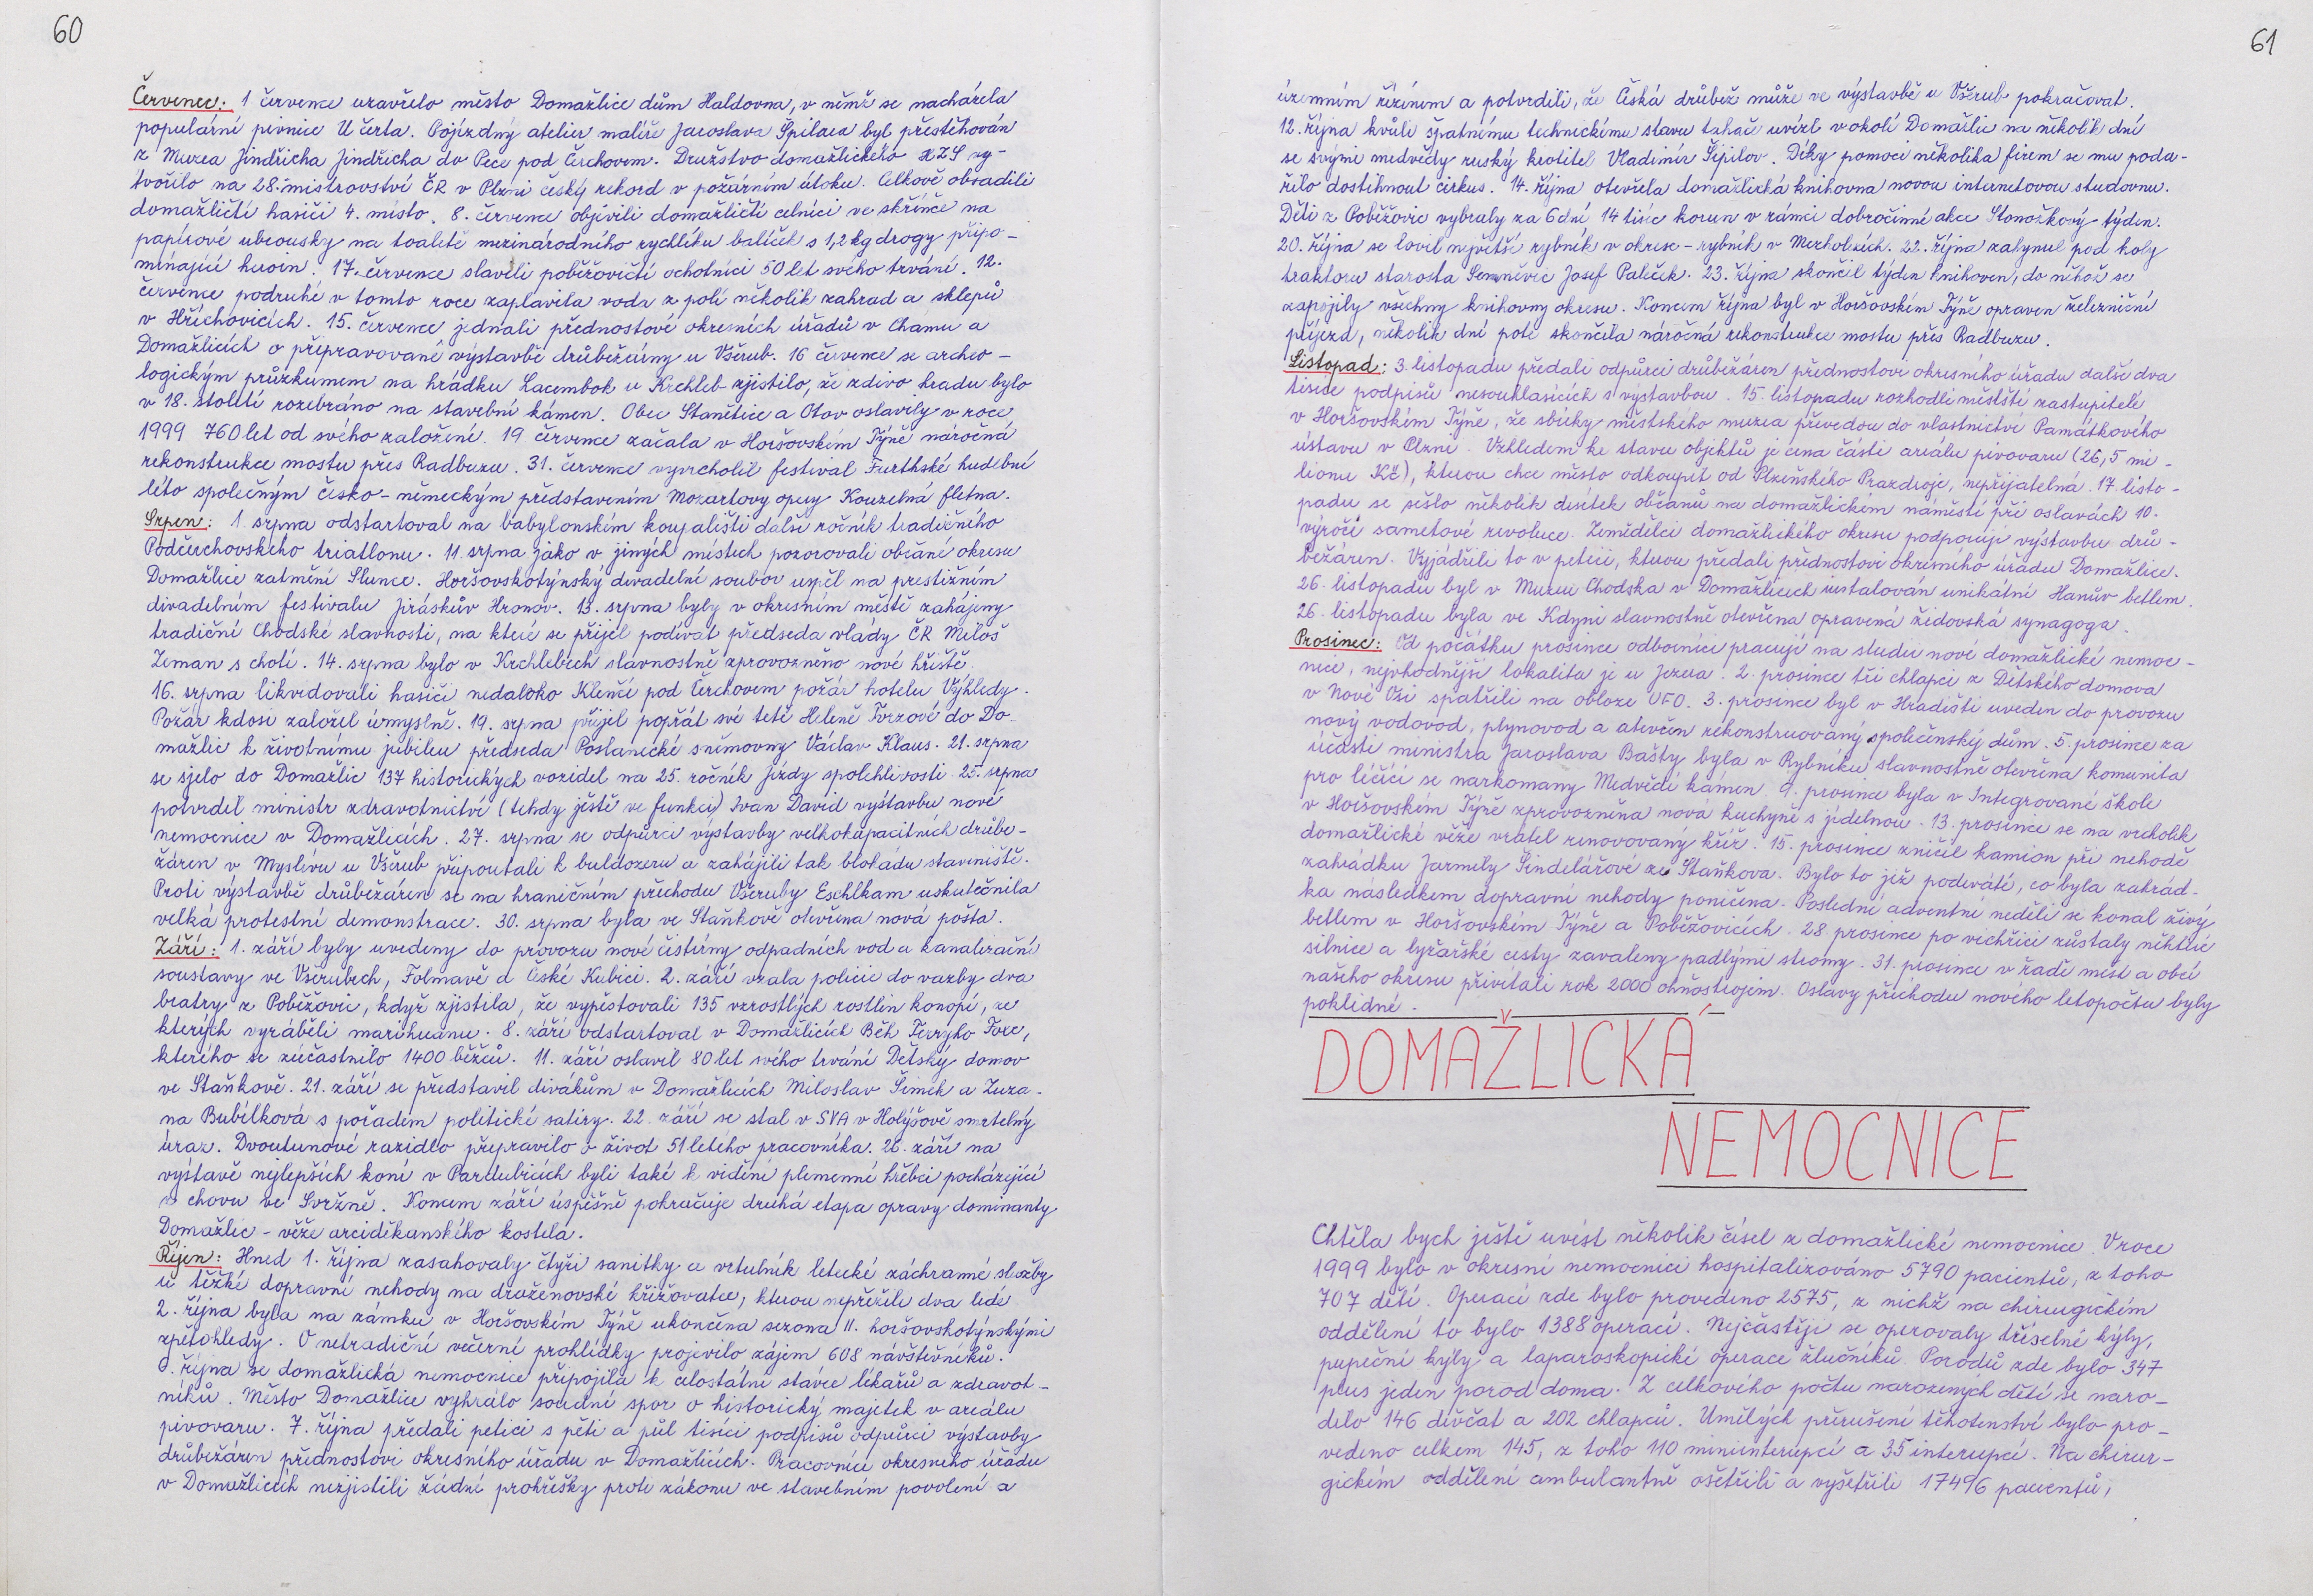 60
Červenec: 1 července uzavřelo město Domažlice dům Haldovna, v němž se nacházela
populární pivnice U čerta. Pojízdný atelier malíře Jaroslava Špilara byl přestěhován
z Muzea Jindřicha Jindřicha do Pece pod Čerchovem. Družstvo domažlického HZS vy-
tvořilo na 28. mistrovství ČR v Plzni český rekord v požárním útoku. Celkově obsadili
domažličtí hasiči 4. místo. 8. července objevili domažličtí celníci ve skříňce na
papírové ubrousky na toaletě mezinárodního rychlíku balíček s 1,2 kg drogy připo-
mínající heroin. 17. července slavili poběžovičtí ochotníci 50 let svého trvání. 12.
července podruhé v tomto roce zaplavila voda z polí několik zahrad a sklepů
v Hříchovicích. 15. července jednali přednostové okresních úřadů v Chamu a
Domažlicích o připravované výstavbě drůbežárny u Všerub. 16 července se archeo-
logickým průzkumem na hrádku Lacembok u Krchleb zjistilo, že zdivo hradu bylo
v 18. století rozebráno na stavební kámen. Obec Stanětice a Otov oslavily v roce
1999 760 let od svého založení. 19 července začala v Horšovském Týně náročná
rekonstrukce mostu přes Radbuzu. 31. července vyvrcholil festival Furthské hudební
léto společným česko-německým představením Mozartovy opery Kouzelná flétna.
Srpen: 1. srpna odstartoval na babylonském koupališti další ročník tradičního
Podčerchovského triatlonu. 11. srpna jako v jiných místech pozorovali občané okresu
Domažlice zatmění Slunce. Horšovskotýnský divadelní soubor uspěl na prestižním
divadelním festivalu Jiráskův Hronov. 13. srpna byly v okresním městě zahájeny
tradiční Chodské slavnosti, na které se přijel podívat předseda vlády ČR Miloš
Zeman s chotí. 14. srpna bylo v Krchlebech slavnostně zprovozněno nové hřiště.
16. srpna likvidovali hasiči nedaleko Klenčí pod Čerchovem požár hotelu Výhledy.
Požár kdosi založil úmyslně. 19. srpna přijel popřát své tetě Heleně Forzové do Do-
mažlic k životnímu jubileu předseda Poslanecké sněmovny Václav Klaus. 21. srpna
se sjelo do Domažlic 137 historických vozidel na 25. ročník Jízdy spolehlivosti. 25. srpna
potvrdil ministr zdravotnictví (tehdy ještě ve funkci) Ivan David výstavbu nové
nemocnice v Domažlicích. 27. srpna se odpůrci výstavby velkokapacitních drůbe-
žáren v Myslívu u Všerub připoutali k buldozeru a zahájili tak blokádu staveniště.
Proti výstavbě drůbežáren se na hraničním přechodu Všeruby Eschlkam uskutečnila
velká protestní demonstrace. 30. srpna byla ve Staňkově otevřena nová pošta.
Září: 1. září byly uvedeny do provozu nové čistírny odpadních vod a kanalizační
soustavy ve Všerubech, Folmavě a České Kubici. 2. září vzala policie do vazby dva
bratry z Poběžovic, když zjistila, že vypěstovali 135 vzrostlých rostlin konopí, ze
kterých vyráběli marihuanu. 8. září odstartoval v Domažlicích Běh Terryho Foxe,
kterého se zúčastnilo 1400 běžců. 11. září oslavil 80 let svého trvání Dětský domov
ve Staňkově. 21. září se představil divákům v Domažlicích Miloslav Šimek a Zuza-
na Bubílková s pořadem politické satiry. 22. září se stal v SVA v Holýšově smrtelný
úraz. Dvoutunové razidlo připravilo o život 51 letého pracovníka. 26. září na
výstavě nejlepších koní v Pardubicích byli také k vidění plemenní hřebci pocházející
z chovu ve Svržně. Koncem září úspěšně pokračuje druhá etapa opravy dominanty
Domažlic - věže arciděkanského kostela.
Říjen: Hned 1. října zasahovaly čtyři sanitky a vrtulník letecké záchranné služby
u těžké dopravní nehody na draženovské křižovatce, kterou nepřežili dva lidé
2. října byla na zámku v Horšovském Týně ukončena sezona 11. horšovskotýnskými
zpětohledy. O netradiční večerní prohlídky projevilo zájem 608 návštěvníků.
října se domažlická nemocnice připojila k celostátní stávce lékařů a zdravot-
níků. Město Domažlice vyhrálo soudní spor o historický majetek v areálu
pivovaru. 7. října předali petici s pěti a půl tisíci podpisů odpůrci výstavby
drůbežáren přednostovi okresního úřadu v Domažlicích. Pracovníci okresního úřadu
v Domažlicích nezjistili žádné prohřešky proti zákonu ve stavebním povolení a
61
územním řízením a potvrdili, že Česká drůbež může ve výstavbě u Všerub pokračovat.
12. října kvůli špatnému technickému stavu tahače uvízl v okolí Domažlic na několik dní
se svými medvědy ruský krotitel Vladimír Šipilov. Díky pomoci několika firem se mu poda-
řilo dostihnout cirkus. 14. října otevřela domažlická knihovna novou internetovou studovnu.
Děti z Poběžovic vybraly za 6 dní 14 tisíc korun v rámci dobročinné akce Stonožkový týden.
20. října se lovil největší rybník v okrese - rybník v Mezholzích. 22. října zahynul pod koly
traktoru starosta Semněvic Josef Paleček. 23. října skončil týden knihoven, do něhož se
zapojily všechny knihovny okresu. Koncem října byl v Horšovském Týně opraven železniční
přejezd, několik dní poté skončila náročná rekonstrukce mostu přes Radbuzu.
Listopad: 3. listopadu předali odpůrci drůbežáren přednostovi okresního úřadu další dva
tisíce podpisů nesouhlasících s výstavbou. 15. listopadu rozhodli městští zastupitelé
v Horšovském Týně, že sbírky městského muzea převedou do vlastnictví Památkového
ústavu v Plzni. Vzhledem ke stavu objektů je cena části areálu pivovaru (26,5 mi-
lionu Kč), kterou chce město odkoupit od Plzeňského Prazdroje, nepřijatelná. 17. listo-
padu se sešlo několik desítek občanů na domažlickém náměstí při oslavách 10.
výročí sametové revoluce. Zemědělci domažlického okresu podporují výstavbu drů-
bežáren. Vyjádřili to v petici, kterou předali přednostovi okresního úřadu Domažlice.
26. listopadu byl v Muzeu Chodska v Domažlicích instalován unikátní Hanův betlem.
26. listopadu byla ve Kdyni slavnostně otevřena opravená židovská synagoga.
Prosinec: Od počátku prosince odborníci pracují na studii nové domažlické nemoc-
nice, nejvhodnější lokalita je u Jezera. 2. prosince tři chlapci z Dětského domova
v Nové Vsi spatřili na obloze UFO. 3. prosince byl v Hradišti uveden do provozu
nový vodovod, plynovod a otevřen rekonstruovaný společenský dům. 5. prosince za
účasti ministra Jaroslava Bašty byla v Rybníku slavnostně otevřena komunita
pro léčící se narkomany Medvědí kámen. 9. prosince byla v Integrované škole
v Horšovském Týně zprovozněna nová kuchyně s jídelnou. 13. prosince se na vrcholek
domažlické věže vrátil renovovaný kříž. 15. prosince zničil kamion při nehodě
zahrádku Jarmily Šindelářové ze Staňkova. Bylo to již podeváté, co byla zahrád-
ka následkem dopravní nehody poničena. Poslední adventní neděli se konal živý
betlem v Horšovském Týně a Poběžovicích. 28. prosince po vichřici zůstaly některé
silnice a lyžařské cesty zavaleny padlými stromy. 31. prosince v řadě měst a obcí
našeho okresu přivítali rok 2000 ohňostrojem. Oslavy příchodu nového letopočtu byly
poklidné.
DOMAŽLICKÁ
NEMOCNICE
Chtěla bych ještě uvést několik čísel z domažlické nemocnice. V roce
1999 bylo v okresní nemocnici hospitalizováno 5790 pacientů, z toho
707 dětí. Operací zde bylo provedeno 2575, z nichž na chirurgickém
oddělení to bylo 1388 operací. Nejčastěji se operovaly tříselné kýly,
pupeční kýly a laparoskopické operace žlučníků. Porodů zde bylo 347
plus jeden porod doma. Z celkového počtu narozených dětí se naro-
dilo 146 děvčat a 202 chlapců. Umělých přerušení těhotenství bylo pro-
vedeno celkem 145, z toho 110 miniinterupcí a 35 interupcí. Na chirur-
gickém oddělení ambulantně ošetřili a vyšetřili 17496 pacientů,